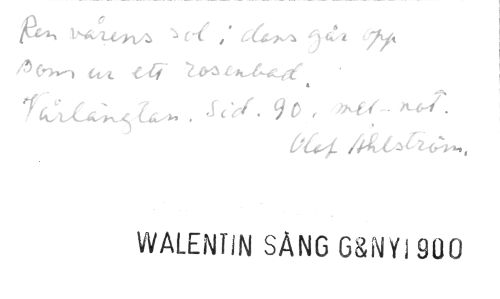 Ren vårens sol i dans går opp
Som ur ett rosenbad.
Vårlängtan. Sid. 90. mel-not.
Olof Ahlström.
WALENTIN SÅNG G&NY 1900